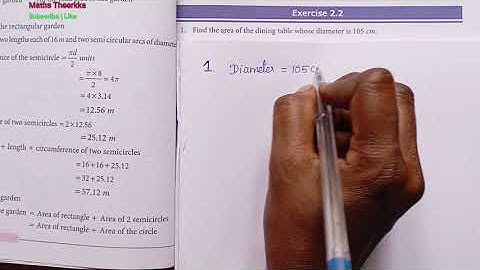 Maths Theorkka
Subscribe | Like
the rectangular garden
two lengths each of 16 m and two semi circular arcs of diameter
nce of the semicircle = πd/2 units
= π×8/2 = 4π
= 4×3.14
= 12.56 m
e of two semicircles = 2×12.56
= 25.12 m
+ length + circumference of two semicircles
= 16+16+25.12
= 32+25.12
= 57.12 m
garden
e garden = Area of rectangle + Area of 2 semicircles
= Area of rectangle + Area of the circle
Exercise 2.2
1. Find the area of the dining table whose diameter is 105 cm.
1. Diameter = 105 c